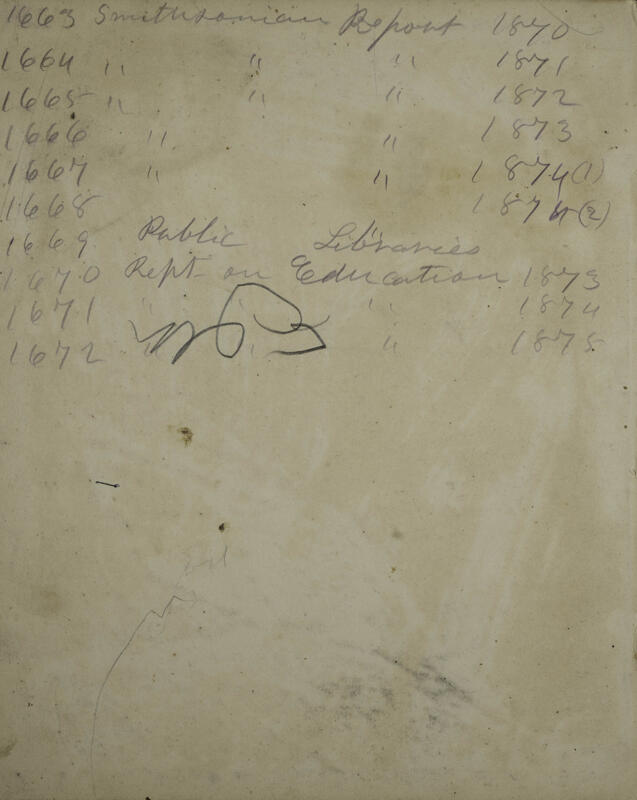 1663 Smithsonian Report 1870
1664 " " " 1871
1665 " " " 1872
1666 " " 1873
1667 " " 1874 (1)
1668 1874 (2)
1669 Public Libraries
1670 Rept on Education 1873
1671 " " " 1874
1672 " " " 1875